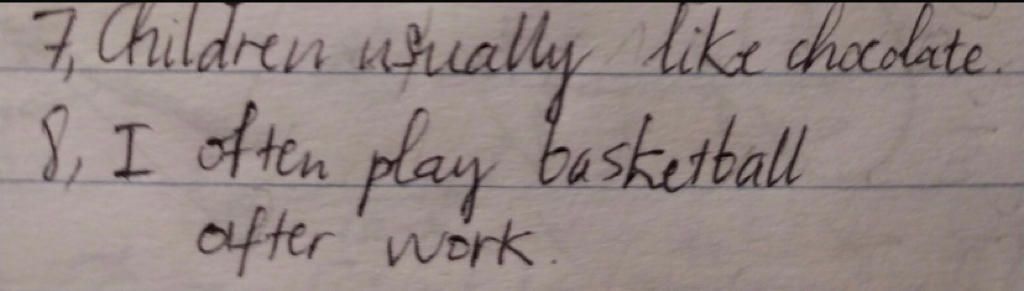 7, Children usually like chocolate.
8, I often play basketball
after work.